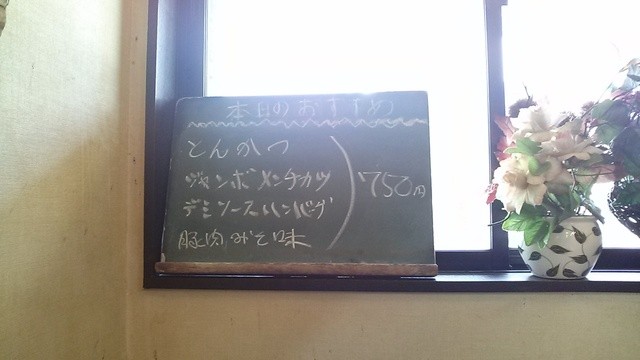 本日のおすすめ
とんかつ
ジャンボメンチカツ
デミソースハンバーグ
豚肉みそ味
750円